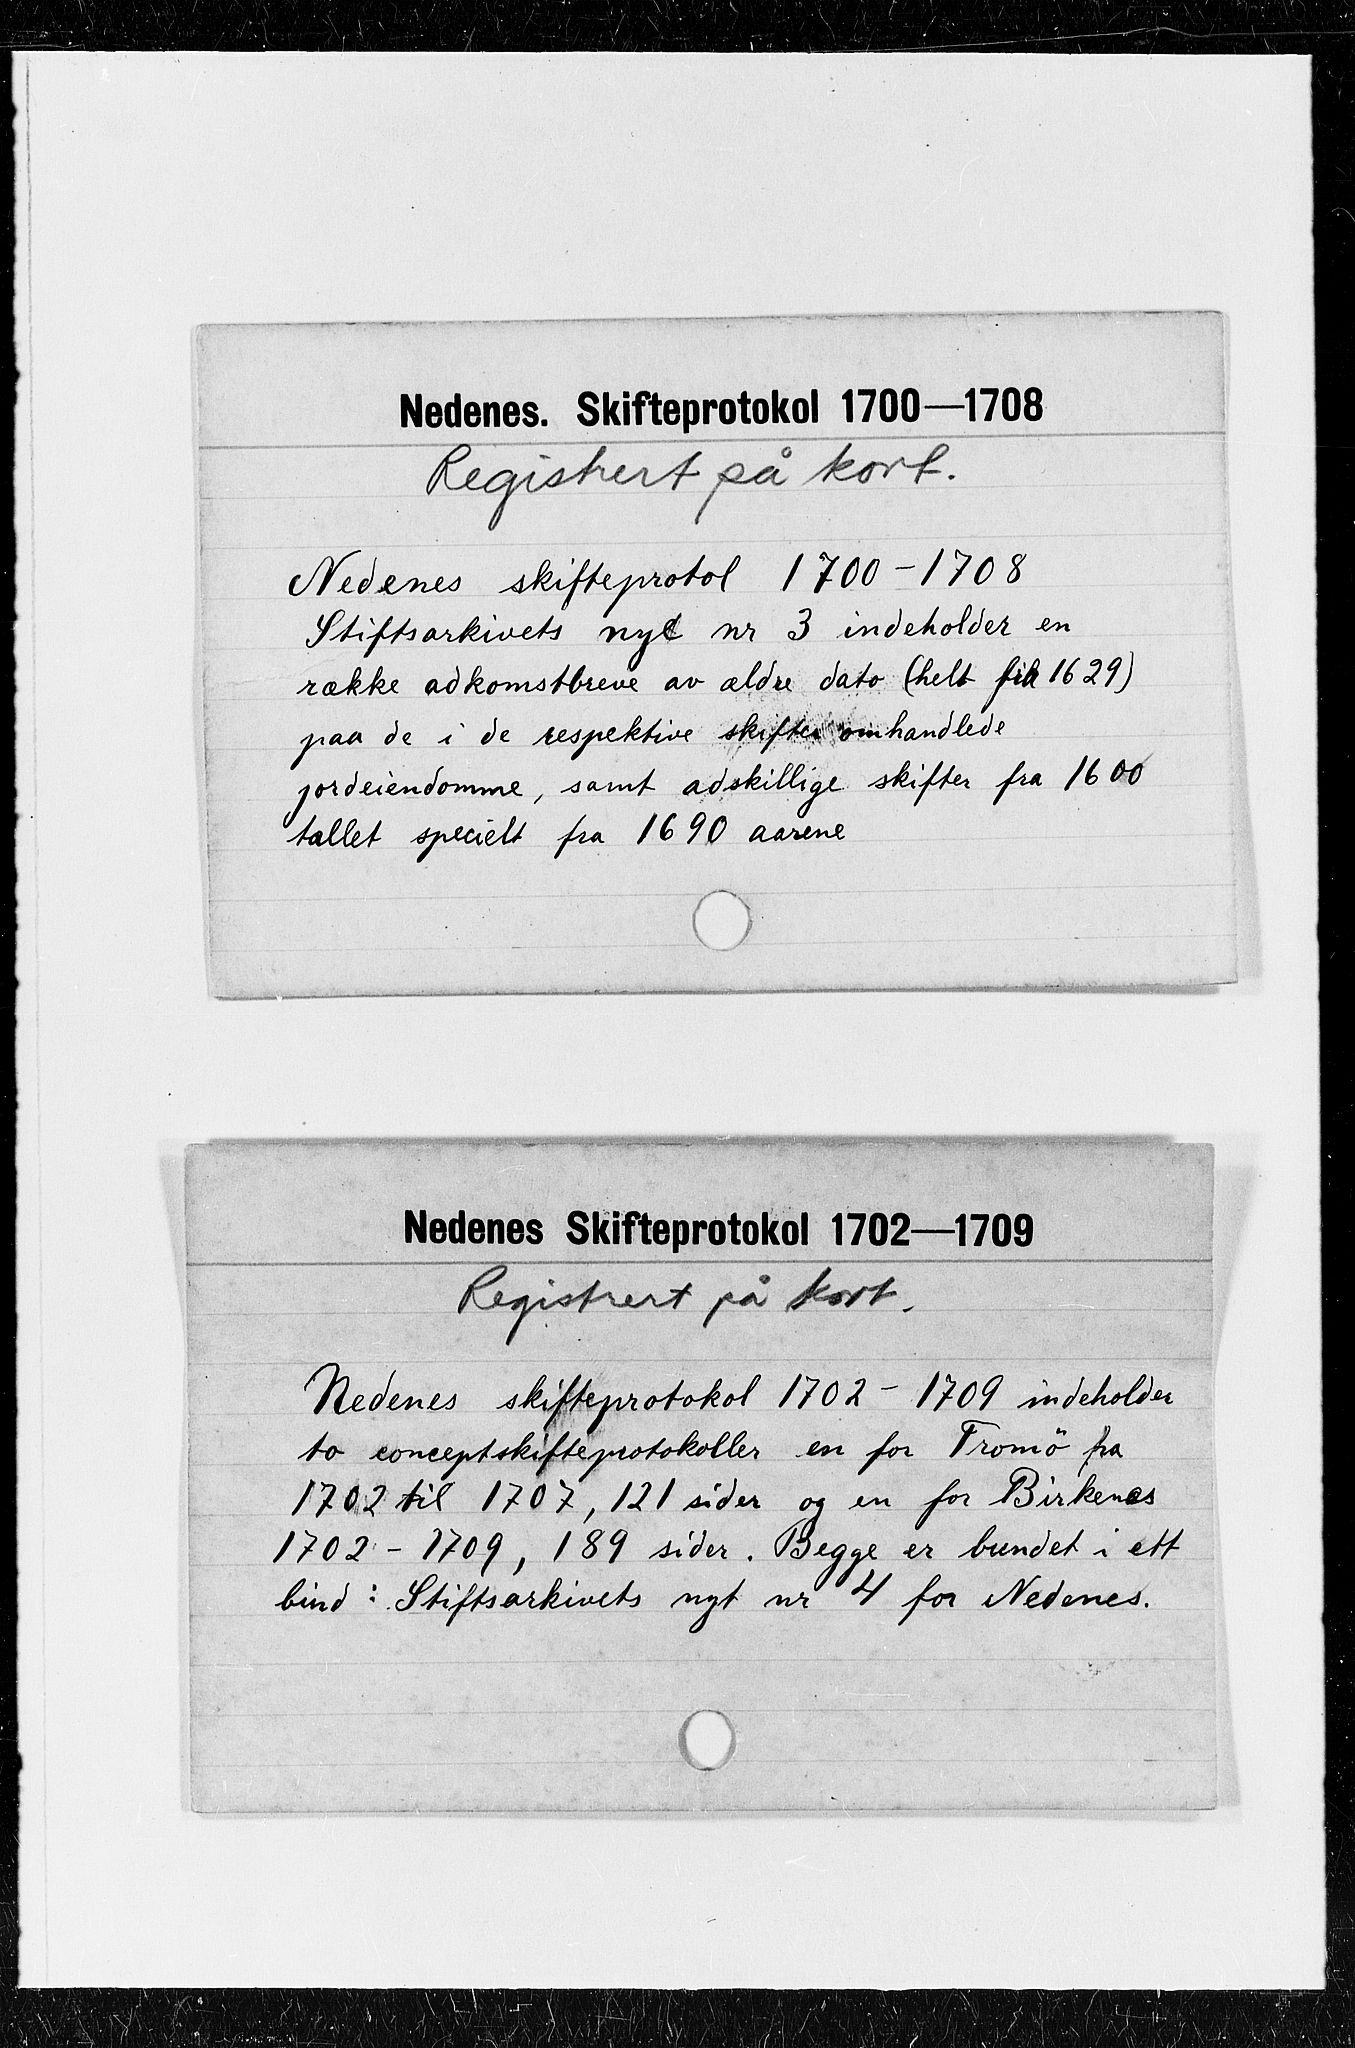 Nedenes. Skifteprotokol 1700—1708
Registrert på kort.
Nedenes skifteprotol 1700-1708
Stiftsarkivets nyt nr 3 indeholder en
række adkomstbreve av ældre dato (helt fra 1629)
paa de i de respektive skifter omhandlede
jordeiendomme, samt adskillige skifter fra 1600
tallet specielt fra 1690 aarene
Nedenes Skifteprotokol 1702—1709
Registrert på kort.
Nedenes skifteprotokol 1702 - 1709 indeholder
to conceptskifteprotokoller en for Tromö fra
1702 til 1707, 121 sider og en for Birkenes
1702 - 1709, 189 sider. Begge er bundet i ett
bind: Stiftsarkivets nyt nr 4 for Nedenes.